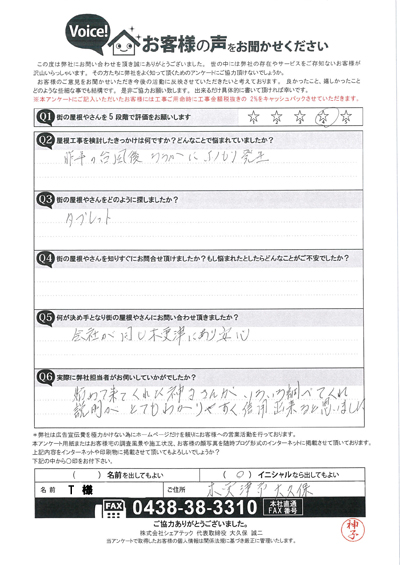 Voice!
お客様の声をお聞かせください
この度は弊社にお問い合わせを頂き誠にありがとうございました。世の中には弊社の存在やサービスをご存知ないお客様が
沢山いらっしゃいます。その方たちに弊社をよく知って頂くためのアンケートにご協力頂けないでしょうか。
お客様のご意見をお聞かせいただき今後の活動に反映させていただきたいと考えております。良かったこと、嬉しかったこと
どのような些細な事でも結構です。是非ご協力お願い致します。出来るだけ具体的に書いて頂ければ幸いです。
※本アンケートにご記入いただいたお客様には工事ご依頼時に工事金額税抜きの2%をキャッシュバックさせていただきます。
Q1 街の屋根やさんを5段階で評価をお願いします ☆ ☆ ☆ ☆ ☆
Q2 屋根工事を検討したきっかけは何ですか?どんなことで悩まれていましたか?
昨年の台風後
Q3 街の屋根やさんをどのように探しましたか?
タブレット
Q4 街の屋根やさんを知りすぐにお問合せ頂けましたか?もし悩まれたとしたらどんなことがご不安でしたか?
Q5 何が決め手となり街の屋根やさんにお問い合わせ頂きましたか?
会社が同じ木更津にあり安心
Q6 実際に弊社担当者がお伺いしていかがでしたか?
初めて来てくれた神子さんがいろいろ調べてくれ
説明がとてもわかりやすく信用出来ると思いました
※弊社は広告宣伝費を極力かけない為にホームページだけを頼りにお客様への営業活動を行っております。
本アンケート用紙またはお客様宅の調査風景や施工状況、お客様の顔写真を随時ブログ形式のインターネットに掲載させて頂いております。
上記内容をインターネットや印刷物に掲載させて頂いてもよろしいでしょうか?
下記の中から〇印をお付け下さい。
( )名前を出してもよい (○)イニシャルなら出してもよい
名前 T 様 ご住所 木更津市大久保
FAX 0438-38-3310 本社直通FAX番号
ご協力ありがとうございました。
株式会社シェアテック 代表取締役 大久保 誠二
当アンケートで取得したお客様の個人情報は関係法規に基づき厳正に管理いたします。
神子